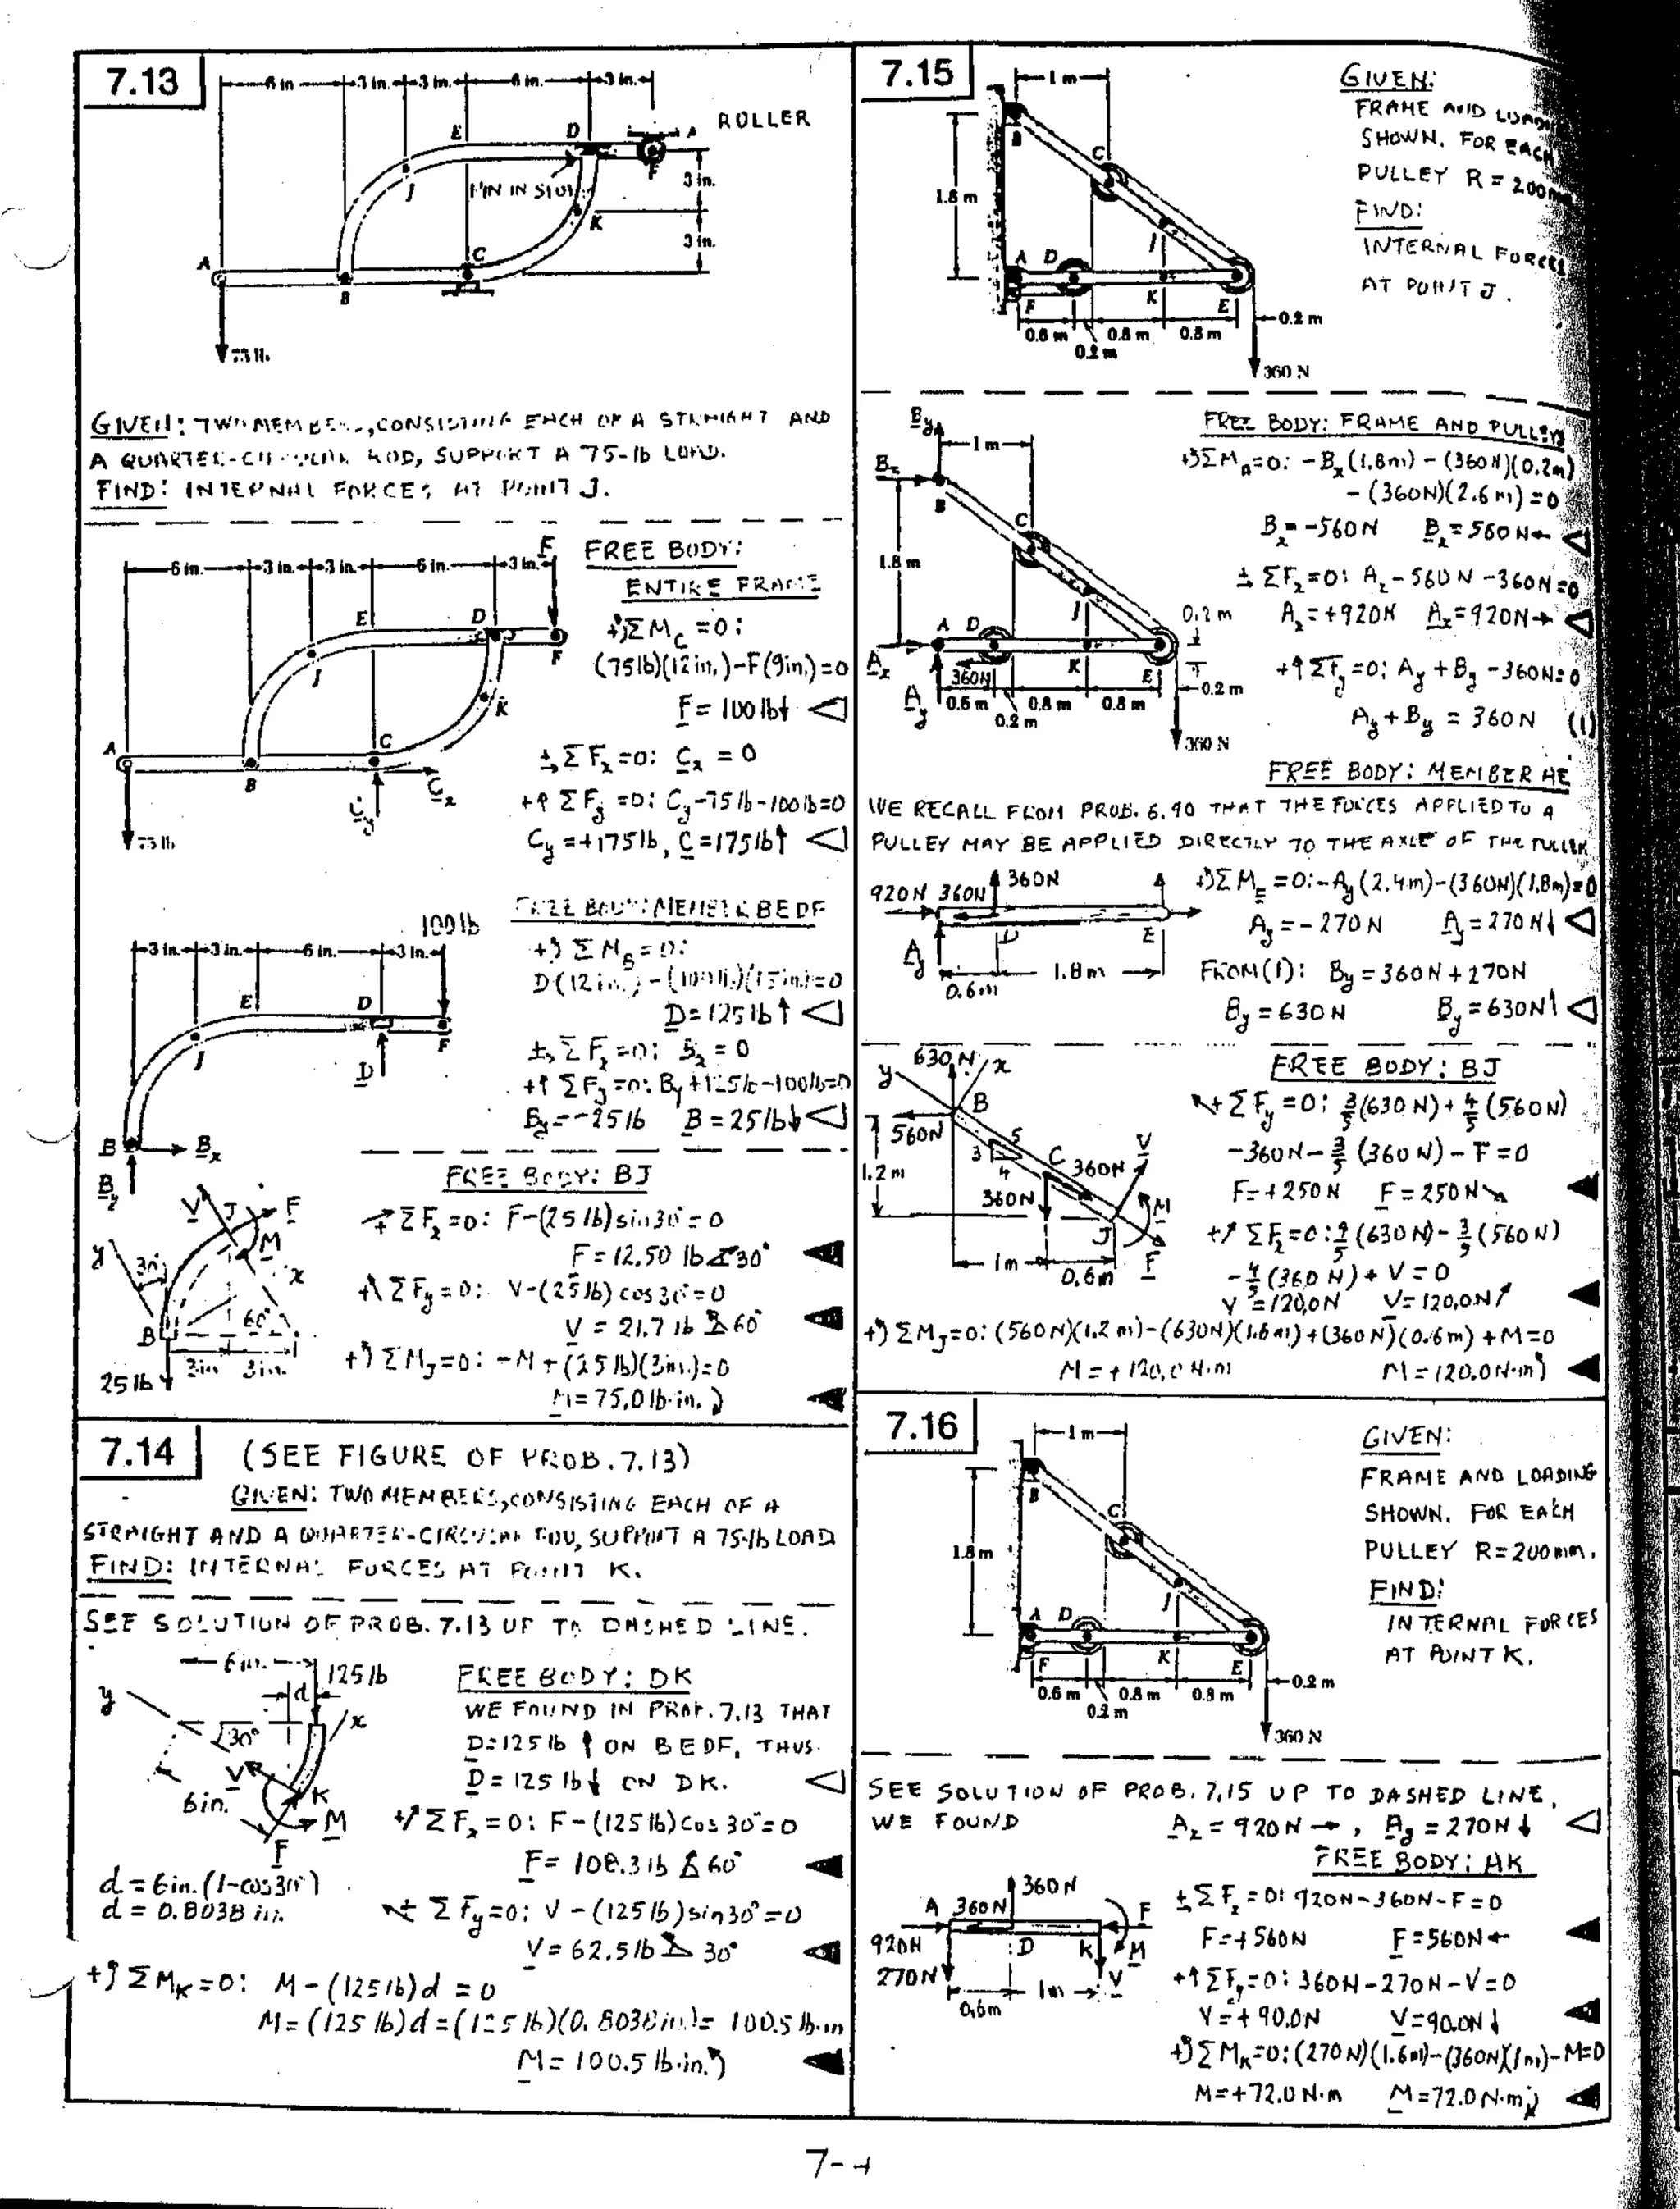 7.13
6 in
3 in.
3 in.
6 in.
3 in.
ROLLER
E
D
F
J
PIN IN SLOT
K
3 in.
3 in.
A
B
C
75 lb
GIVEN: TWO MEMBERS, CONSISTING EACH OF A STRAIGHT AND
A QUARTER-CIRCULAR ROD, SUPPORT A 75-lb LOAD.
FIND: INTERNAL FORCES AT POINT J.
FREE BODY:
ENTIRE FRAME
6 in.
3 in.
3 in.
6 in.
3 in.
F
E
D
F
J
K
A
B
C
C_x
C_y
75 lb
+↺ΣM_C =0:
(75lb)(12in.)-F(9in.)=0
F = 100 lb↓
±ΣF_x=0: C_x = 0
+↑ΣF_y=0: C_y-75 lb-100lb=0
C_y=+175lb, C=175lb↑
FREE BODY: MEMBER BEDF
100lb
3 in.
3 in.
6 in.
3 in.
E
D
J
F
D
B
B_x
B_y
+↺ΣM_B=0:
D(12in.)-(100lb)(15in.)=0
D=125 lb↑
±ΣF_x=0: B_x = 0
+↑ΣF_y=0: B_y+125lb-100lb=0
B_y=-25 lb B=25 lb↓
FREE BODY: BJ
V J F
M
y 30° x
B 60°
3in. 3in.
25 lb
ΣF_x=0: F-(25 lb)sin30°=0
F = 12.50 lb 30°
ΣF_y=0: V-(25lb)cos30°=0
V = 21.7 lb 60°
+↺ΣM_J=0: -M+(25 lb)(3in.)=0
M=75.0lb·in.
7.14
(SEE FIGURE OF PROB.7.13)
GIVEN: TWO MEMBERS, CONSISTING EACH OF A
STRAIGHT AND A QUARTER-CIRCULAR ROD, SUPPORT A 75-lb LOAD
FIND: INTERNAL FORCES AT POINT K.
SEE SOLUTION OF PROB. 7.13 UP TO DASHED LINE.
6in.
125 lb
y d x
30°
V K
6in. M
F
d = 6in.(1-cos30°)
d = 0.8038 in.
FREE BODY: DK
WE FOUND IN PROB. 7.13 THAT
D=125 lb ↑ ON BEDF, THUS
D = 125 lb↓ ON DK.
+↗ΣF_x=0: F-(125 lb)cos30°=0
F= 108.3 lb 60°
ΣF_y=0: V-(125 lb)sin30°=0
V= 62.5 lb 30°
+↺ΣM_K=0: M-(125 lb)d = 0
M=(125 lb)d=(125 lb)(0.8038in.)= 100.5 lb·in
M=100.5 lb·in.
7.15
1 m
B
C
1.8 m
J
A D
F K E
0.6 m
0.2 m
0.8 m
0.8 m
0.2 m
360 N
GIVEN:
FRAME AND LOADING
SHOWN. FOR EACH
PULLEY R = 200
FIND:
INTERNAL FORCES
AT POINT J.
FREE BODY: FRAME AND PULLEYS
B_y
1 m
B_x
B
C
1.8 m
J
A D
A_x
K E
360N
A_y
0.6 m
0.2 m
0.8 m
0.8 m
0.2 m
0.2 m
360 N
+↺ΣM_A=0: -B_x(1.8m)-(360N)(0.2m)
-(360N)(2.6m)=0
B_x=-560N B_x=560N←
±ΣF_x=0: A_x-560N-360N=0
A_x=+920N A_x=920N→
+↑ΣF_y=0: A_y+B_y-360N=0
A_y+B_y = 360N (1)
FREE BODY: MEMBER AE
WE RECALL FROM PROB. 6.90 THAT THE FORCES APPLIED TO A
PULLEY MAY BE APPLIED DIRECTLY TO THE AXLE OF THE PULLEY.
920N 360N 360N
A_y D E
0.6m 1.8m
+↺ΣM_E=0: -A_y(2.4m)-(360N)(1.8m)=0
A_y=-270N A_y=270N↓
FROM (1): B_y=360N+270N
B_y=630N B_y=630N↑
630 N
y x
B
560N
5
3 4
C
360N
360N
V
M
1.2m
J
F
1m 0.6m
FREE BODY: BJ
↖+ΣF_y=0: 3/5(630 N)+4/5(560N)
-360N-3/5(360 N)-F=0
F=+250N F=250N↘
+↗ΣF_x=0: 4/5(630N)-3/5(560N)
-4/5(360 N)+V=0
V=120.0N V=120.0N↗
+↺ΣM_J=0: (560N)(1.2 m)-(630N)(1.6m)+(360N)(0.6m)+M=0
M=+120.0 N·m M=120.0N·m
7.16
1 m
B
C
1.8 m
J
A D
F K E
0.6 m
0.2 m
0.8 m
0.8 m
0.2 m
360 N
GIVEN:
FRAME AND LOADING
SHOWN. FOR EACH
PULLEY R=200mm.
FIND:
INTERNAL FORCES
AT POINT K.
SEE SOLUTION OF PROB. 7.15 UP TO DASHED LINE.
WE FOUND A_x=920N→, A_y=270N↓
FREE BODY: AK
360N
A 360N F
920N D K M
270N V
0.6m 1m
±ΣF_x=0: 920N-360N-F=0
F=+560N F=560N←
+↑ΣF_y=0: 360N-270N-V=0
V=+90.0N V=90.0N↓
+↺ΣM_K=0: (270N)(1.6m)-(360N)(1m)-M=0
M=+72.0N·m M=72.0N·m